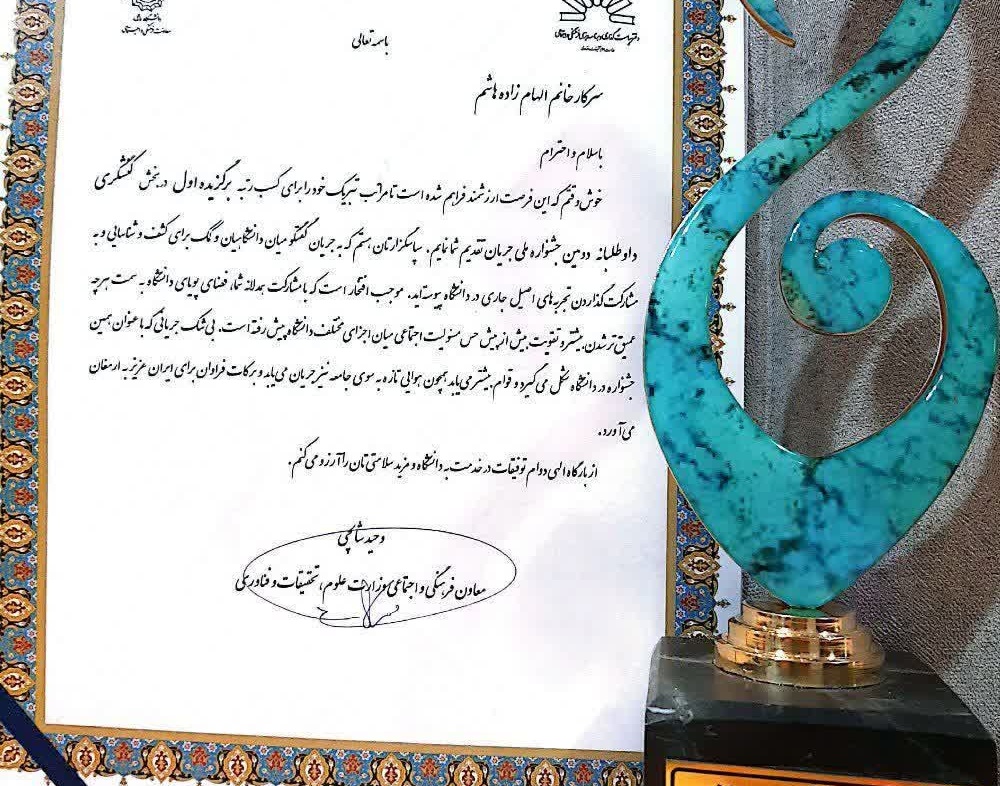 باسمه تعالی
سرکار خانم الهام زاده هاشم
باسلام و احترام
خوش وقتم که این فرصت ارزشمند فراهم شده است تا مراتب تبریک خود را برای کسب رتبه برگزیده اول در بخش کنشگری
داوطلبانه دومین جشنواره ملی جریان تقدیم شما نمایم. سپاسگزارتان هستم که به جریان گفتگو میان دانشگاهیان و تگ برای کشف و شناسایی و به
مشارکت گذاردن تجربه های اصیل جاری در دانشگاه پیوسته اید. موجب افتخار است که با مشارکت همدلانه شما، فضای پویای دانشگاه به سمت هرچه
عمیق تر شدن بیشتر و تقویت بیش از پیش حس مسئولیت اجتماعی میان اجزای مختلف دانشگاه پیش رفته است. بی شک جریانی که با عنوان همین
جشنواره در دانشگاه شکل می گیرد و قوام بیشتر می یابد همچون هوایی تازه به سوی جامعه نیز جریان می یابد و برکات فراوان برای ایران عزیز به ارمغان
می آورد.
از بارگاه الهی دوام توفیقات در خدمت به دانشگاه و مزید سلامتی تان را آرزو می کنم.
وحید شالچی
معاون فرهنگی و اجتماعی وزارت علوم، تحقیقات و فناوری